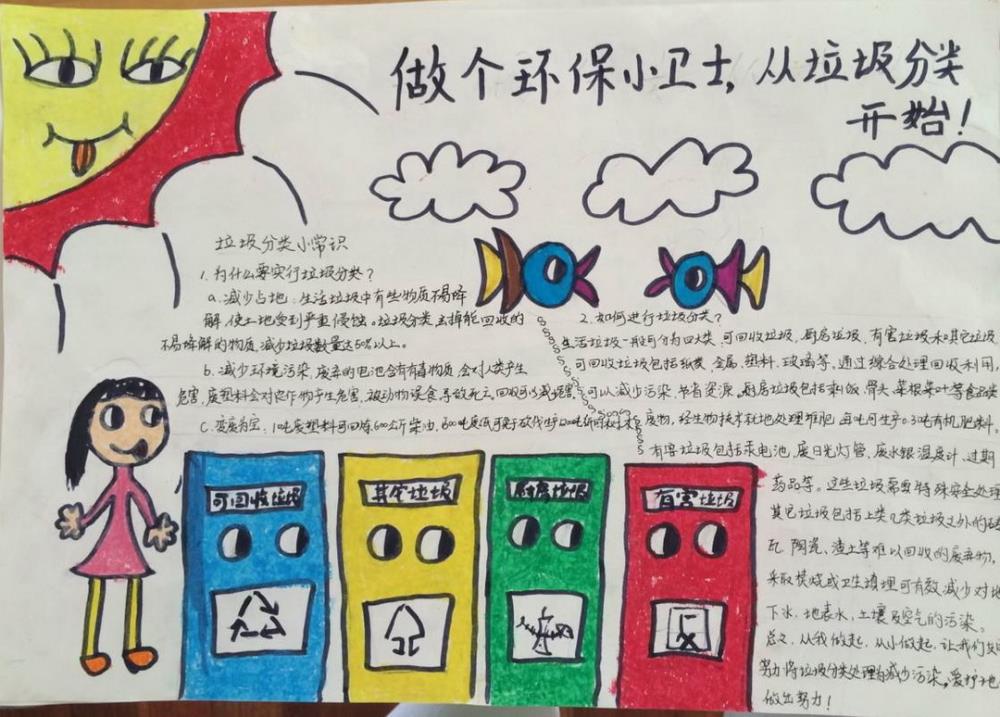 做个环保小卫士,从垃圾分类
开始!
垃圾分类小常识
1.为什么要实行垃圾分类?
a.减少占地:生活垃圾中有些物质不易降
解,使土地受到严重侵蚀。垃圾分类去掉能回收的
不易降解的物质,减少垃圾数量达50%以上。
b.减少环境污染,废弃的电池含有有毒物质,会对人类产生
危害,废塑料会对农作物产生危害,被动物误食导致死亡,回收可以减少危害
C.变废为宝:1吨废塑料可回炼600公斤柴油,
2.如何进行垃圾分类?
生活垃圾一般可分为四大类:可回收垃圾,厨房垃圾,有害垃圾和其它垃圾
可回收垃圾包括纸类,金属,塑料,玻璃等,通过综合处理回收利用,
可以减少污染,节省资源。厨房垃圾包括剩饭,骨头,菜根菜叶等食品类
废物,经生物技术就地处理堆肥,每吨可生产0.3吨有机肥料。
有害垃圾包括汞电池,废日光灯管,废水银温度计,过期
药品等。这些垃圾需要特殊安全处理
其它垃圾包括上类几类垃圾之外的砖
瓦,陶瓷,渣土等难以回收的废弃物,
采取焚烧或卫生填埋可有效减少对地
下水,地表水,土壤及空气的污染。
总之,从我做起,从小做起,让我们
努力将垃圾分类处理为减少污染,爱护
做出努力!
可回收垃圾
其它垃圾
厨房垃圾
有害垃圾